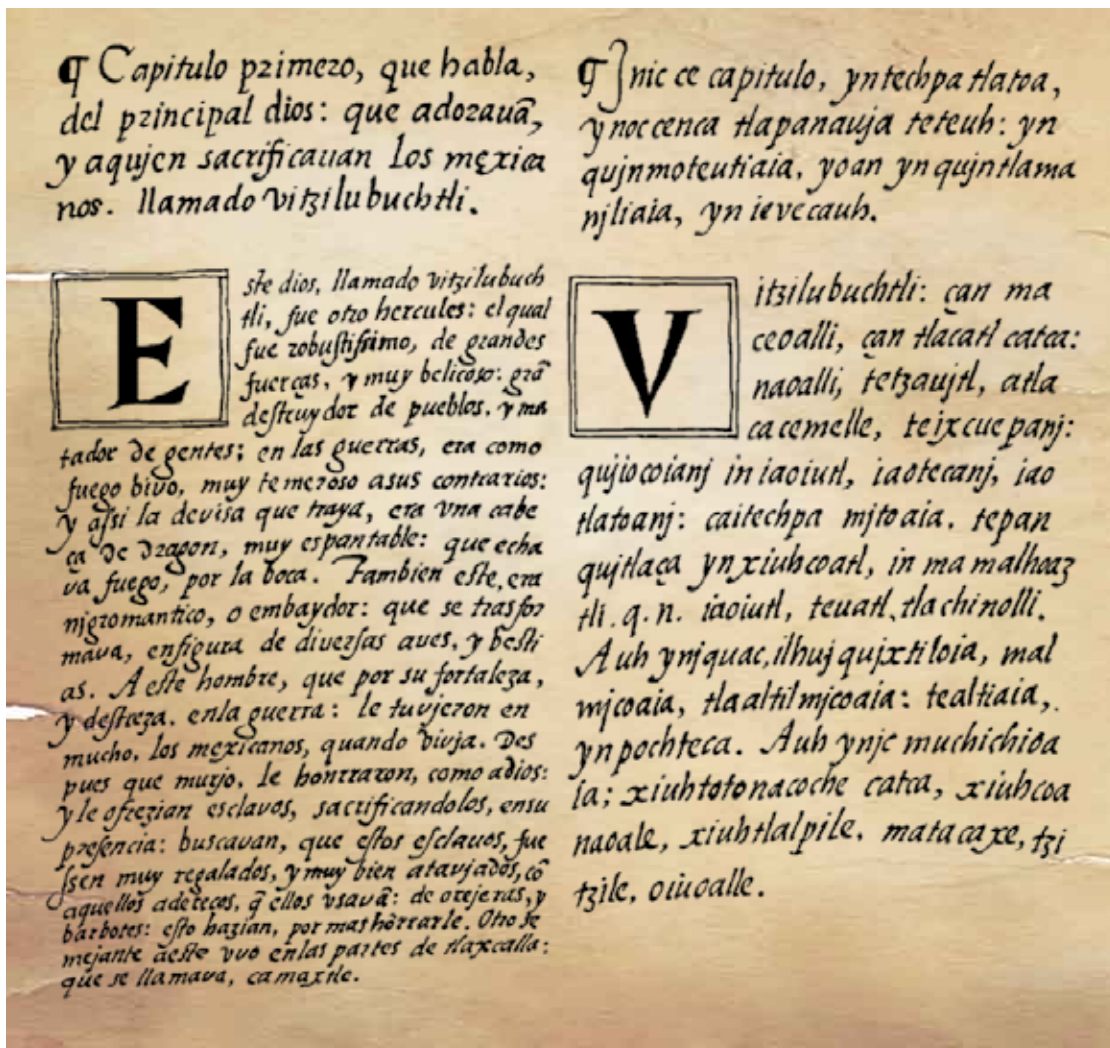 ¶ Capitulo primero, que habla,
del principal dios: que adorauã,
y aqujen sacrificauan los mexica
nos. llamado vitzilubuchtli.
Este dios, llamado vitzilubuch
tli, fue otro hercules: el qual
fue robustissimo, de grandes
fuerças, y muy belicoso: grã
destruydor de pueblos. y ma
tador de gentes; en las guerras, era como
fuego bivo, muy temeroso asus contrarios:
y assi la devisa que traya, era vna cabe
ça de dragon, muy espantable: que echa
va fuego, por la boca. Tambien este, era
njgromantico, o embaydor: que se trasfor
mava, enfigura de diversas aves, y besti
as. A este hombre, que por su fortaleza,
y destreza. enla guerra: le tuvjeron en
mucho, los mexicanos, quando vivja. Des
pues que murjo, le honrraron, como adios:
y le ofrezian esclavos, sacrificandolos, ensu
presencia: buscauan, que estos esclauos, fue
ssen muy regalados, y muy bien atavjados, cõ
aquellos adereços, q̃ ellos vsavã: de orejeras, y
barbotes: esto hazian, por mas hõrrarle. Otro se
mejante aeste vuo enlas partes de tlaxcalla:
que se llamava, camaxtle.
¶ Jnic ce capitulo, yntechpa tlatoa,
ynoccenca tlapanauja teteuh: yn
qujnmoteutiaia, yoan yn qujntlama
njliaia, yn ievecauh.
Vitzilubuchtli: çan ma
ceoalli, çan tlacatl catca:
naoalli, tetzaujtl, atla
cacemelle, teixcuepanj:
qujiocoianj in iaoiutl, iaotecanj, iao
tlatoanj: caitechpa mjtoaia. tepan
qujtlaça ynxiuhcoatl, in mamalhoaz
tli. q. n. iaoiutl, teuatl, tlachinolli.
Auh ynjquac, ilhuj qujxtiloia, mal
mjcoaia, tlaaltilmjcoaia: tealtiaia,
ynpochteca. Auh ynjc muchichioa
ia; xiuhtotonacoche catca, xiuhcoa
naoale, xiuhtlalpile. matacaxe, tzi
tzile. oiuoalle.